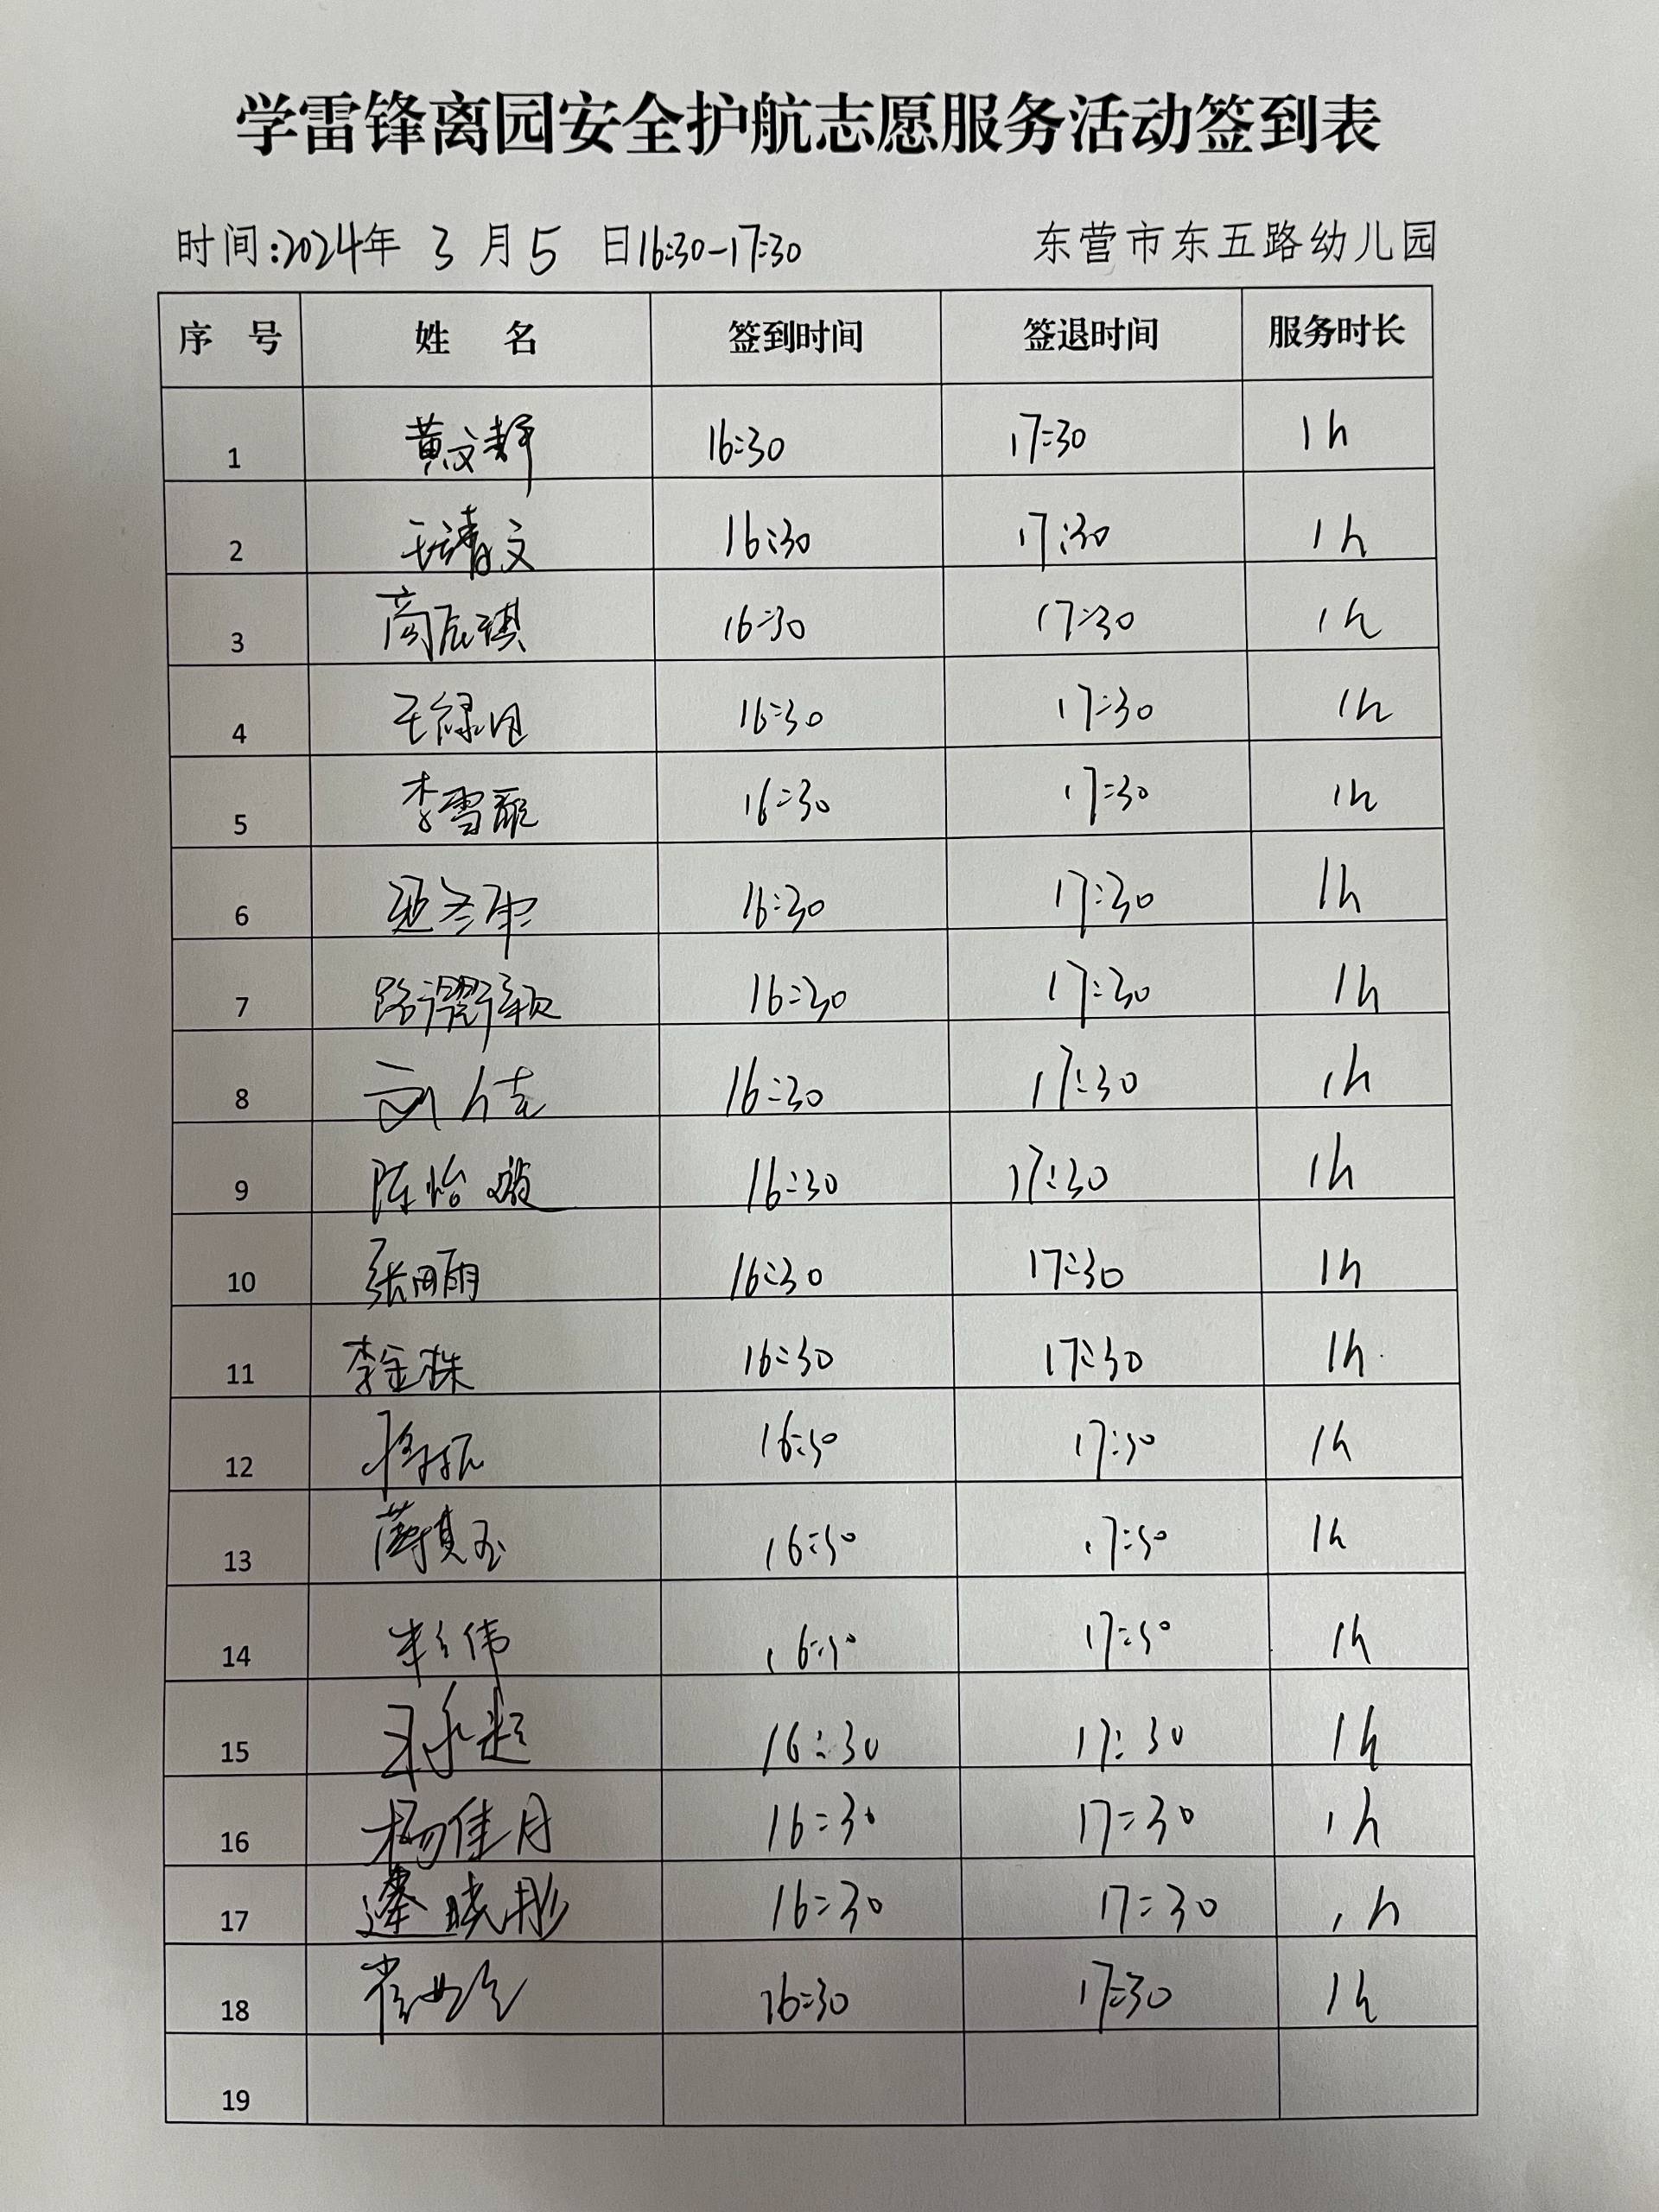 学雷锋离园安全护航志愿服务活动签到表
时间:2024年 3 月 5 日16:30-17:30 东营市东五路幼儿园
序 号 姓 名 签到时间 签退时间 服务时长
1 黄文静 16:30 17:30 1h
2 王靖文 16:30 17:30 1h
3 商辰琪 16:30 17:30 1h
4 王 16:30 17:30 1h
5 李雪 16:30 17:30 1h
6 16:30 17:30 1h
7 路 颖 16:30 17:30 1h
8 刘 16:30 17:30 1h
9 陈怡璇 16:30 17:30 1h
10 张雨 16:30 17:30 1h
11 李金株 16:30 17:30 1h
12 16:30 17:30 1h
13 玉 16:30 17:30 1h
14 伟 16:30 17:30 1h
15 超 16:30 17:30 1h
16 杨佳月 16:30 17:30 1h
17 逄晓彤 16:30 17:30 1h
18 16:30 17:30 1h
19